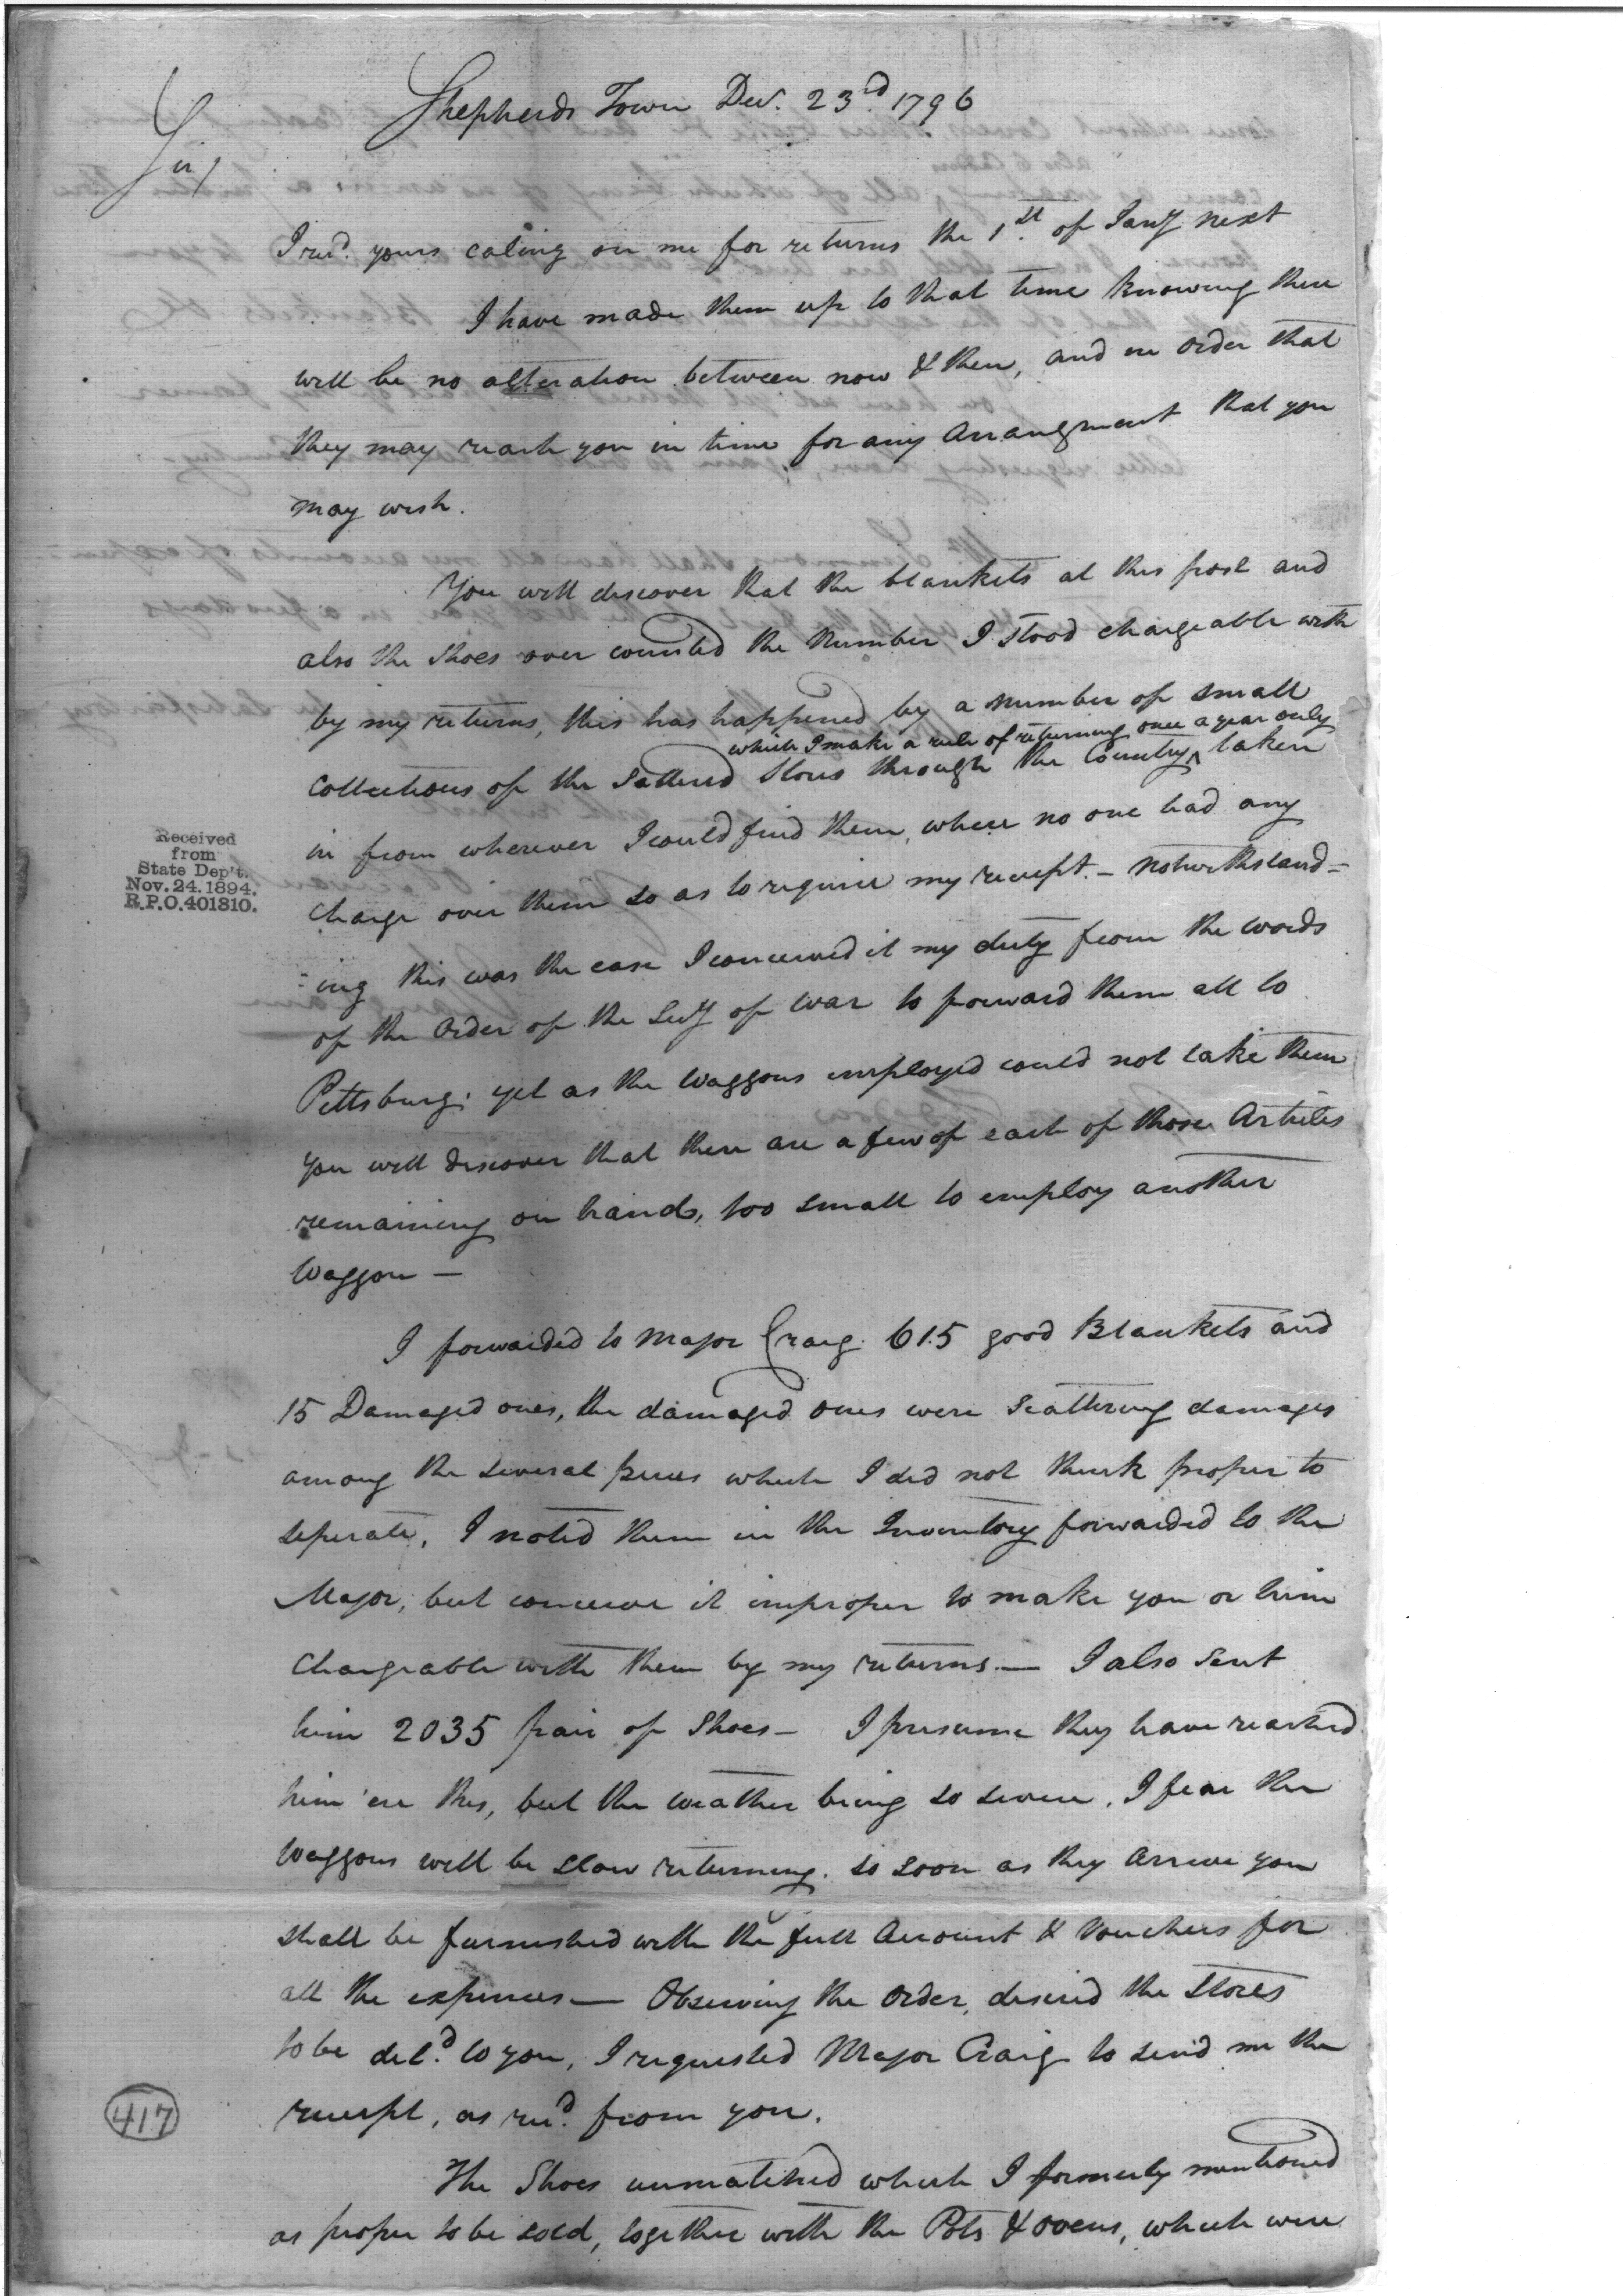 Shepherds Town Decr. 23d. 1796
Sir/
I recd. yours caling on me for returns the 1st. of Jany next
I have made them up to that time knowing there
will be no alteration between now & then, and in order that
they may reach you in time for any Arrangment that you
may wish.
You will discover that the blankets at this post and
also the Shoes over counted the Number I stood chargeable with
by my returns, this has happened by a number of small
which I make a rule of returning once a year only
Collections of the Scattered Stores through the Country ^ taken
in from wherever I could find them, where no one had any
charge over them so as to require my receipt. - Notwithstand=
=ing this was the case I conceived it my duty from the words
of the Order of the Secy of War to forward them all to
Pittsburg; yet as the Waggons employed could not take them
you will discover that there are a few of each of those Articles
remaining on hand, too small to employ another
Waggon —
I forwarded to Major Craig. 615 good Blankets and
15 Damaged ones, the damaged ones were scattering damages
among the several pieces which I did not think proper to
seperate, I noted them in the Inventory forwarded to the
Major, but conceive it improper to make you or him
Chargeable with them by my returns. — I also Sent
him 2035 pair of Shoes — I presume they have reached
him 'ere this, but the weather being so severe, I fear the
Waggons will be slow returning. so soon as they Arrive you
shall be furnished with the full Account & Vouchers for
all the expences — Observing the Order, desired the Stores
to be deld. to you, I requested Major Craig to send me the
receipt, as recd. from you.
The Shoes unmatched which I formerly mentioned
as proper to be sold, together with the Pots & ovens, which were
Received
from
State Dep't.
Nov. 24. 1894.
R.P.O. 401810.
417